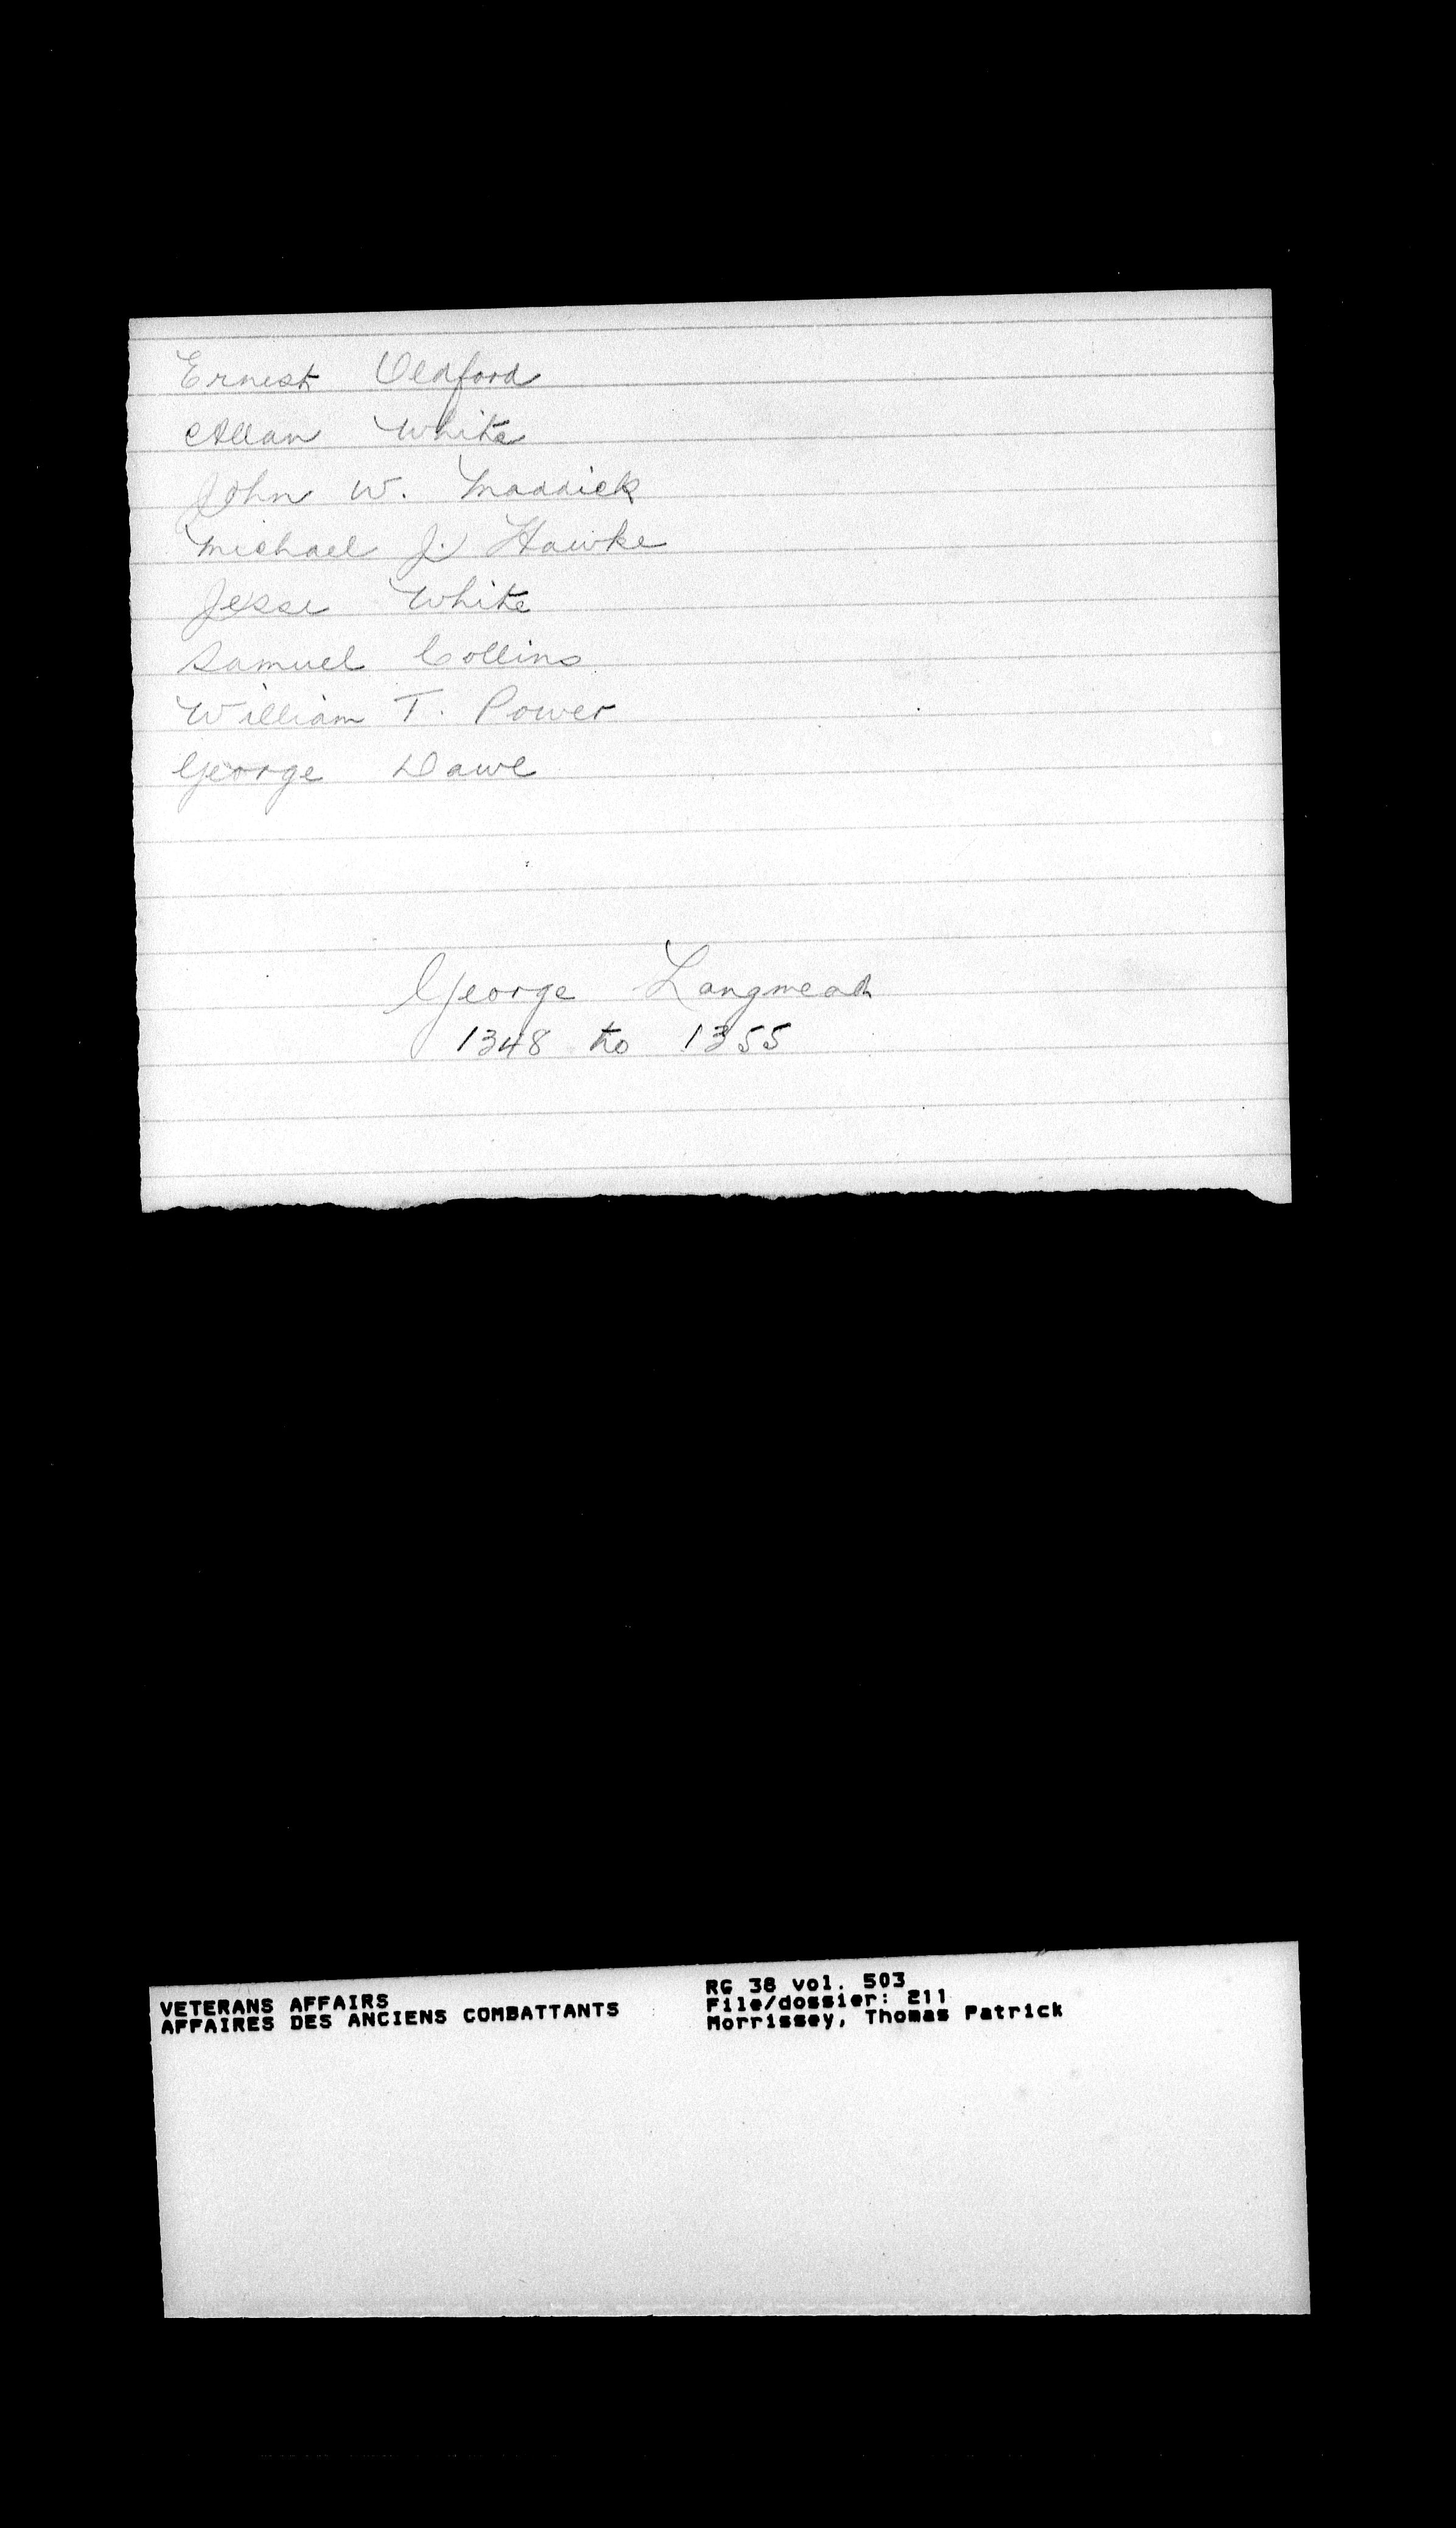 Ernest Oldford
Allan White
John W. Maddick
Michael J. Hawke
Jesse White
Samuel Collins
William T. Power
George Dawe
George Langmead
1348 to 1355
VETERANS AFFAIRS
AFFAIRES DES ANCIENS COMBATTANTS
RG 38 vol. 503
File/dossier: 211
Morrissey, Thomas Patrick